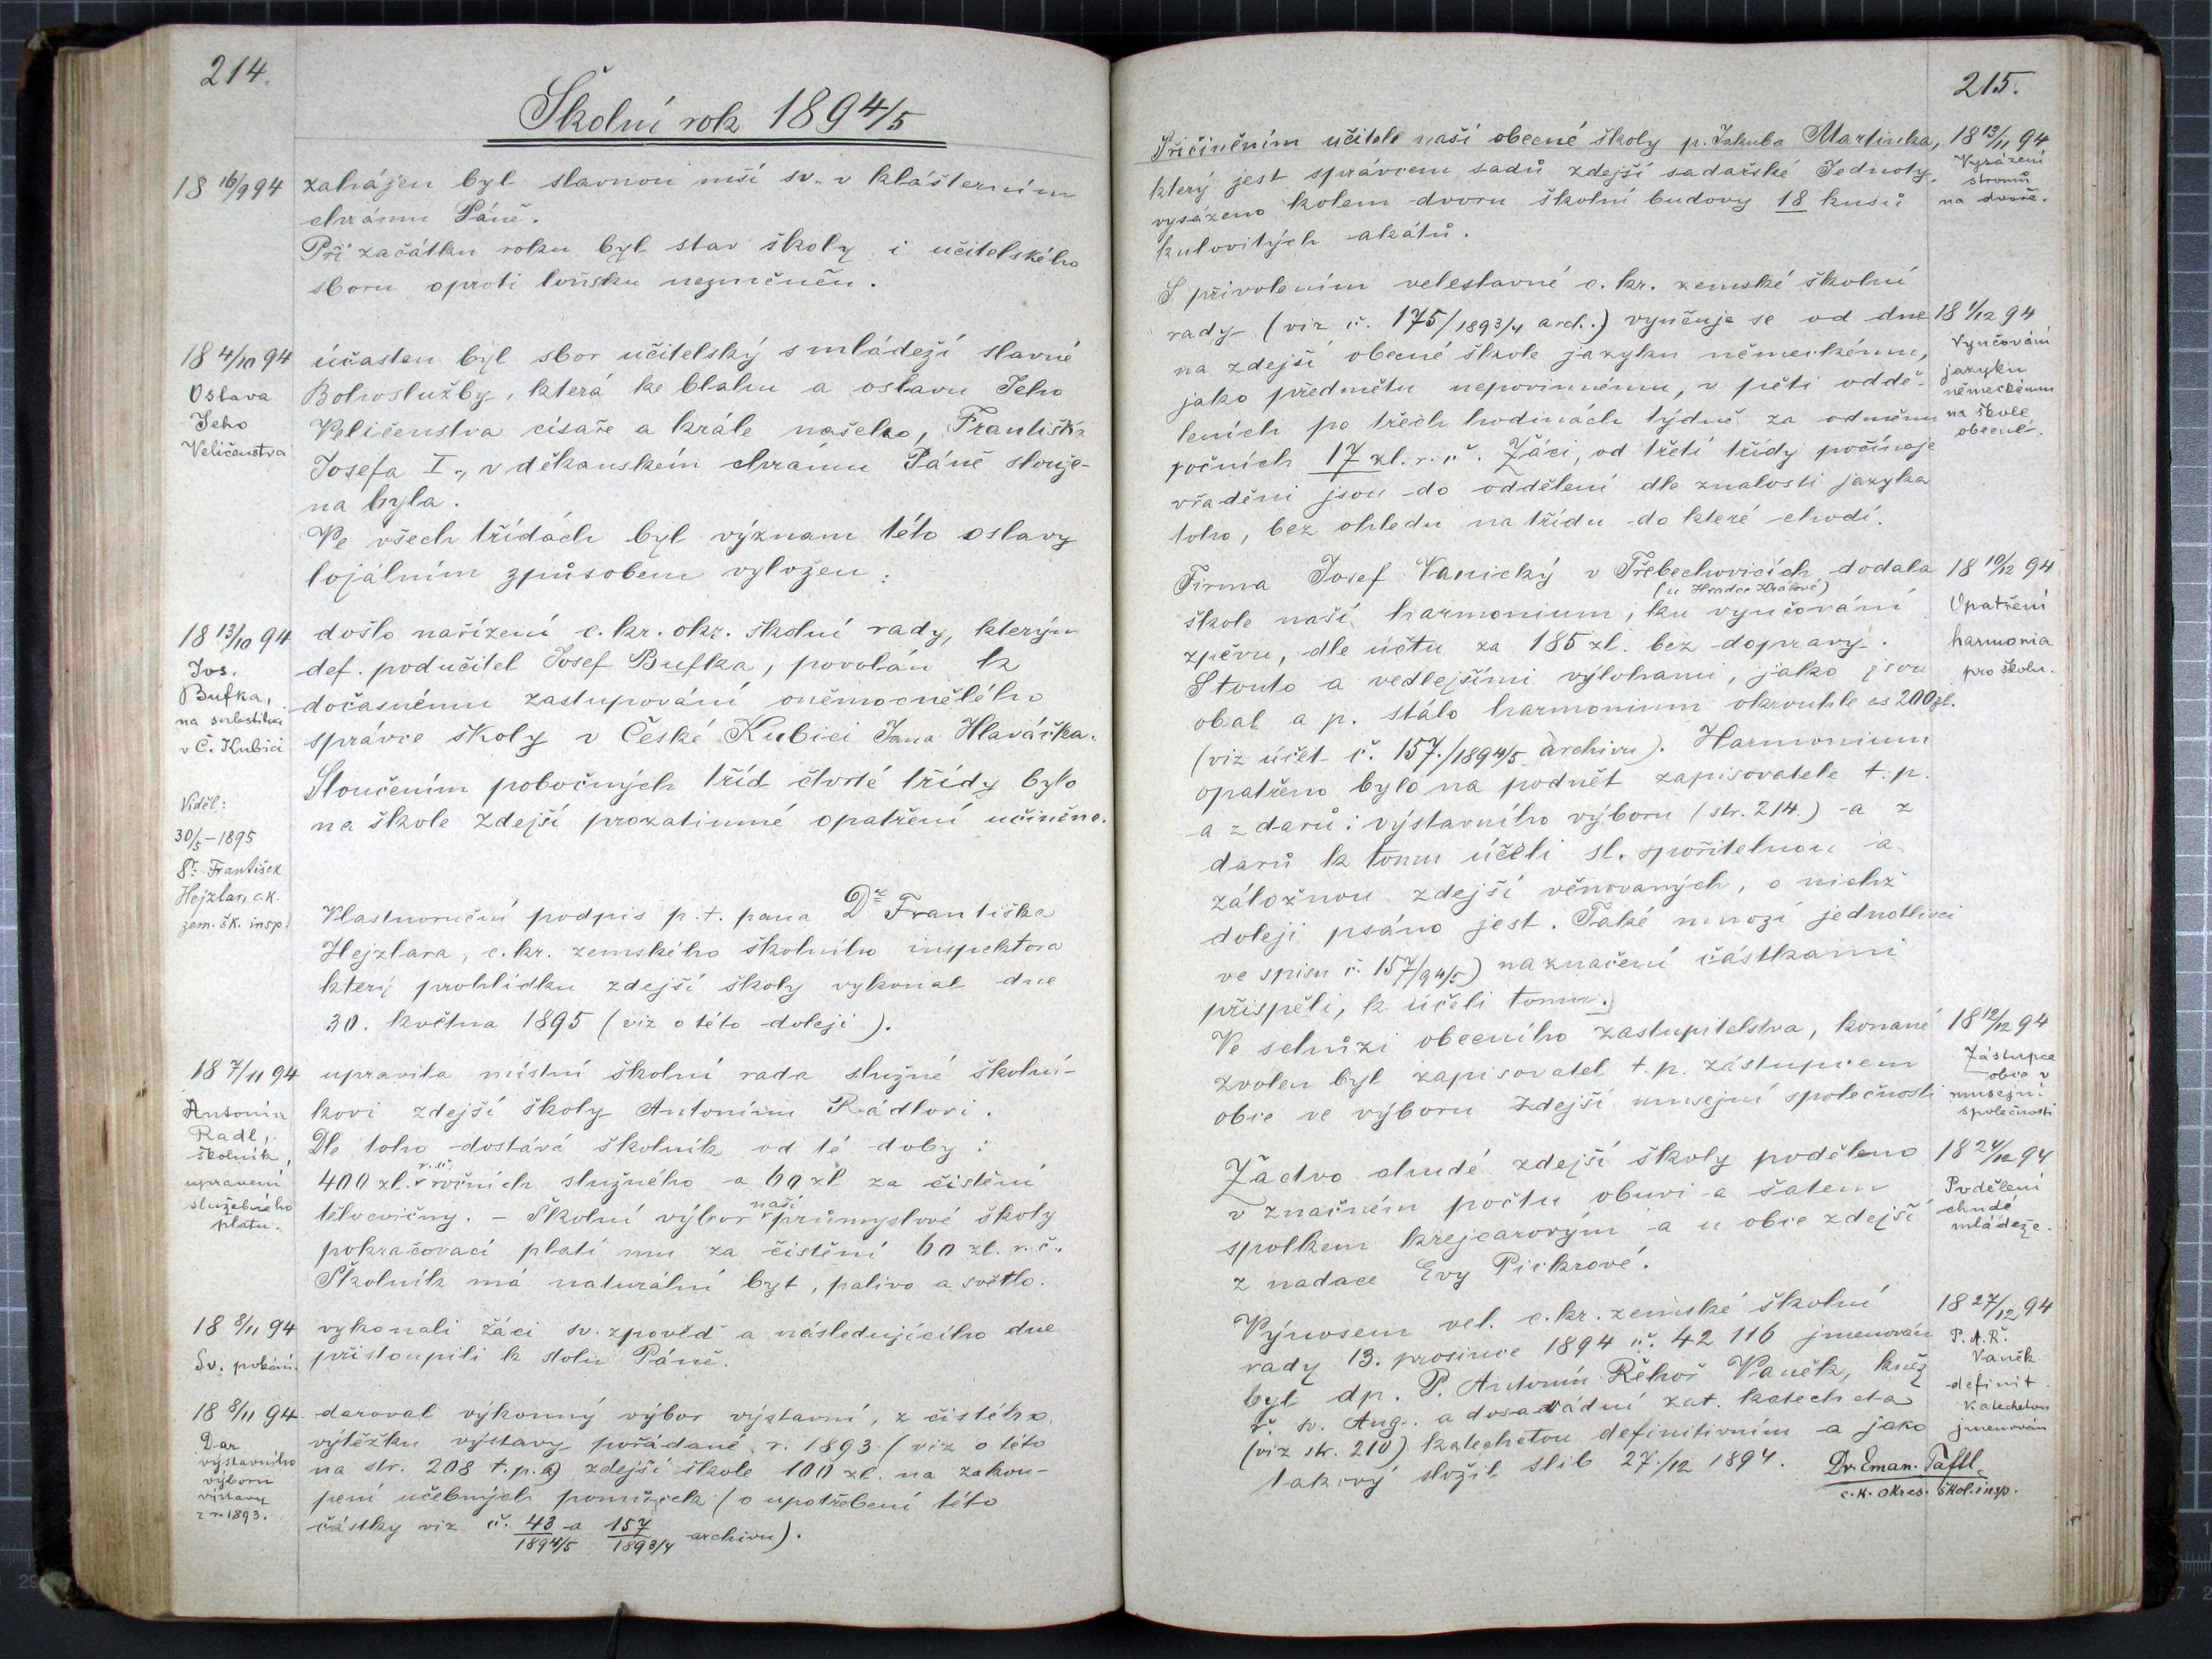 214.
Školní rok 1894/5
18 16/9 94
zahájen byl slavnou mší sv. v klášterním
chrámu Páně.
Při začátku roku byl stav školy i učitelského
sboru oproti loňsku nezměněn.
18 4/10 94
Oslava
Jeho
Veličenstva
účasten byl sbor učitelský s mládeží slavné
Bohoslužby, která ke blahu a oslavu Jeho
Veličenstva císaře a krále našeho, Františka
Josefa I., v děkanském chrámu Páně slouže-
na byla.
Ve všech třídách byl význam této oslavy
lojálním způsobem vyložen.
18 13/10 94
Jos.
Bufka,
na substituci
v Č. Kubici
došlo nařízení c. kr. okr. školní rady, kterým
def. podučitel Josef Bufka, povolán k
dočasnému zastupování oněmocnělého
správce školy v České Kubici Jana Hlaváčka.
Sloučením pobočných tříd čtvrté třídy bylo
na škole zdejší prozatimné opatření učiněno.
Viděl:
30/5 - 1895
Dr. František
Hejzlar, c.k.
zem. šk. insp.
Vlastnoruční podpis p. t. pana Dra Františka
Hejzlara, c. kr. zemského školního inspektora
který prohlídku zdejší školy vykonal dne
30. května 1895 (viz o této doleji).
18 7/11 94
Antonín
Radl,
školník,
upravení
služebního
platu.
upravila místní školní rada služné školní-
kovi zdejší školy Antonínu Rádlovi.
Dle toho dostává školník od té doby:
400 zl. r. č. ročních služného a 60 zl za čistění
tělocvičny. - Školní výbor naší průmyslové školy
pokračovací platí mu za čistění 60 zl. r. č.
Školník má naturální byt, palivo a světlo.
18 8/11 94
Sv. pokání.
vykonali žáci sv. zpověď a následujícího dne
přistoupili k stolu Páně.
18 8/11 94
Dar
výstavního
výboru
výstavy
z r. 1893.
daroval výkonný výbor výstavní, z čistého
výtěžku výstavy pořádané r. 1893 (viz o této
na str. 208 t. p. k.) zdejší škole 100 zl. na zakou-
pení učebných pomůcek (o upotřebení této
částky viz č. 43/1894/5 a 157/1893/4 archivu).
215.
Přičiněním učitele naší obecné školy p. Jakuba Martinka,
který jest správcem sadů zdejší sadařské Jednoty,
vysázeno kolem dvoru školní budovy 18 kusů
kulovitých akátů.
18 13/11 94
Vysázení
stromů
na dvoře.
S přivolením veleslavné c. kr. zemské školní
rady (viz č. 175/1893/4 arch.) vyučuje se od dne
na zdejší obecné škole jazyku německému,
jako předmětu nepovinnému, v pěti oddě-
leních po třech hodinách týdně za odměnu
ročních 17 zl. r. č. Žáci, od třetí třídy počínaje
vřaděni jsou do oddělení dle znalosti jazyka
toho, bez ohledu na třídu do které chodí.
18 1/12 94
Vyučování
jazyku
německému
na škole
obecné.
Firma Josef Vanický v Třebechovicích dodala
(u Hradce Králové)
škole naší harmonium, ku vyučování
zpěvu, dle účtu za 185 zl. bez dopravy.
S touto a vedlejšími výlohami, jako jsou
obal a p. stálo harmonium okrouhle as 200 zl.
(viz účet č. 157./1894/5 archivu). Harmonium
opatřeno bylo na podnět zapisovatele t. p.
a z darů: výstavního výboru (str. 214.) a z
darů k tomu účeli sl. spořitelnou a
záložnou zdejší věnovaných, o nichž
doleji psáno jest. Také mnozí jednotlivci
ve spisu č. 157/94/5) naznačení částkami
přispěli, k účeli tomu.
18 10/12 94
Opatření
harmonia
pro školu.
Ve schůzi obecního zastupitelstva, konané
zvolen byl zapisovatel t. p. zástupcem
obce ve výboru zdejší musejní společnosti
18 12/12 94
Zástupce
obce v
musejní
společnosti
Žactvo chudé zdejší školy poděleno
v značném počtu obuvi a šatem
spolkem krejcarovým a u obce zdejší
z nadace Evy Pickrové.
18 24/12 94
Podělení
chudé
mládeže.
Výnosem vel. c. kr. zemské školní
rady 13. prosince 1894 č. 42 116 jmenován
byl dp. P. Antonín Řehoř Vaněk, kněz
ř. sv. Aug. a dosavádní zat. katecheta
(viz str. 210) katechetou definitivním a jako
takový složil slib 27./12 1894.
18 27/12 94
P. A. Ř.
Vaněk
definit.
katechetou
jmenován
Dr. Eman. Taftl,
c. k. okres. škol. insp.